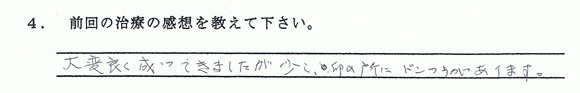 ４．　前回の治療の感想を教えて下さい。
大変良く成ってきましたが少し、●印の所に ドンつうがあります。